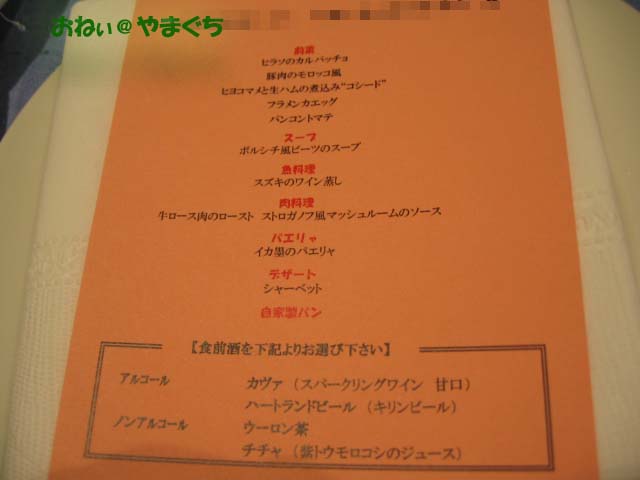 おねぃ@やまぐち
前菜
ヒラソのカルパッチョ
豚肉のモロッコ風
ヒヨコマメと生ハムの煮込み“コシード”
フラメンカエッグ
パンコントマテ
スープ
ボルシチ風ビーツのスープ
魚料理
スズキのワイン蒸し
肉料理
牛ロース肉のロースト ストロガノフ風マッシュルームのソース
パエリャ
イカ墨のパエリャ
デザート
シャーベット
自家製パン
【食前酒を下記よりお選び下さい】
アルコール カヴァ（スパークリングワイン 甘口）
ハートランドビール（キリンビール）
ノンアルコール ウーロン茶
チチャ（紫トウモロコシのジュース）